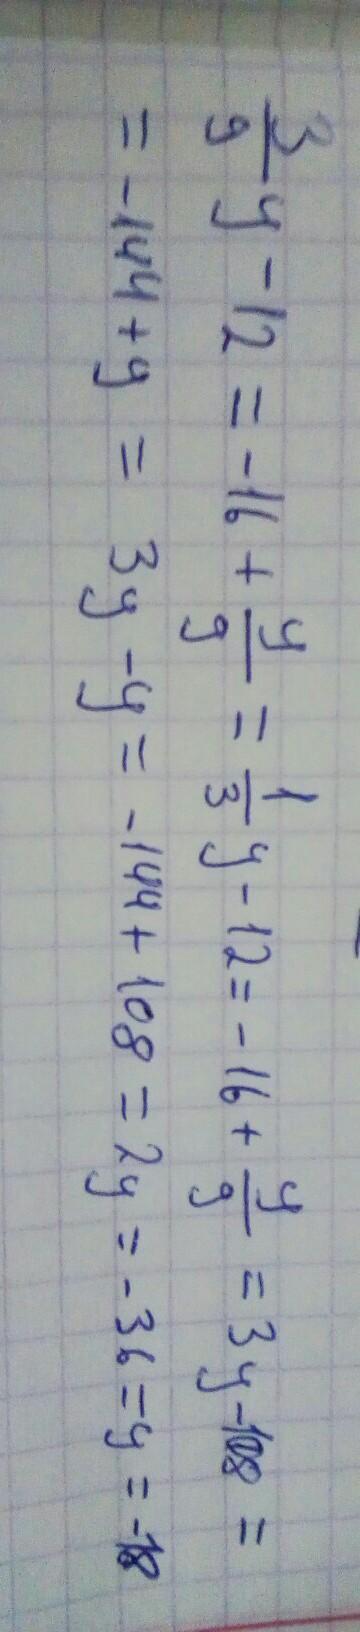 3/9 y - 12 = -16 + y/9 = 1/3 y - 12 = -16 + y/9 = 3y - 108 =
= -144 + y = 3y - y = -144 + 108 = 2y = -36 = y = -18